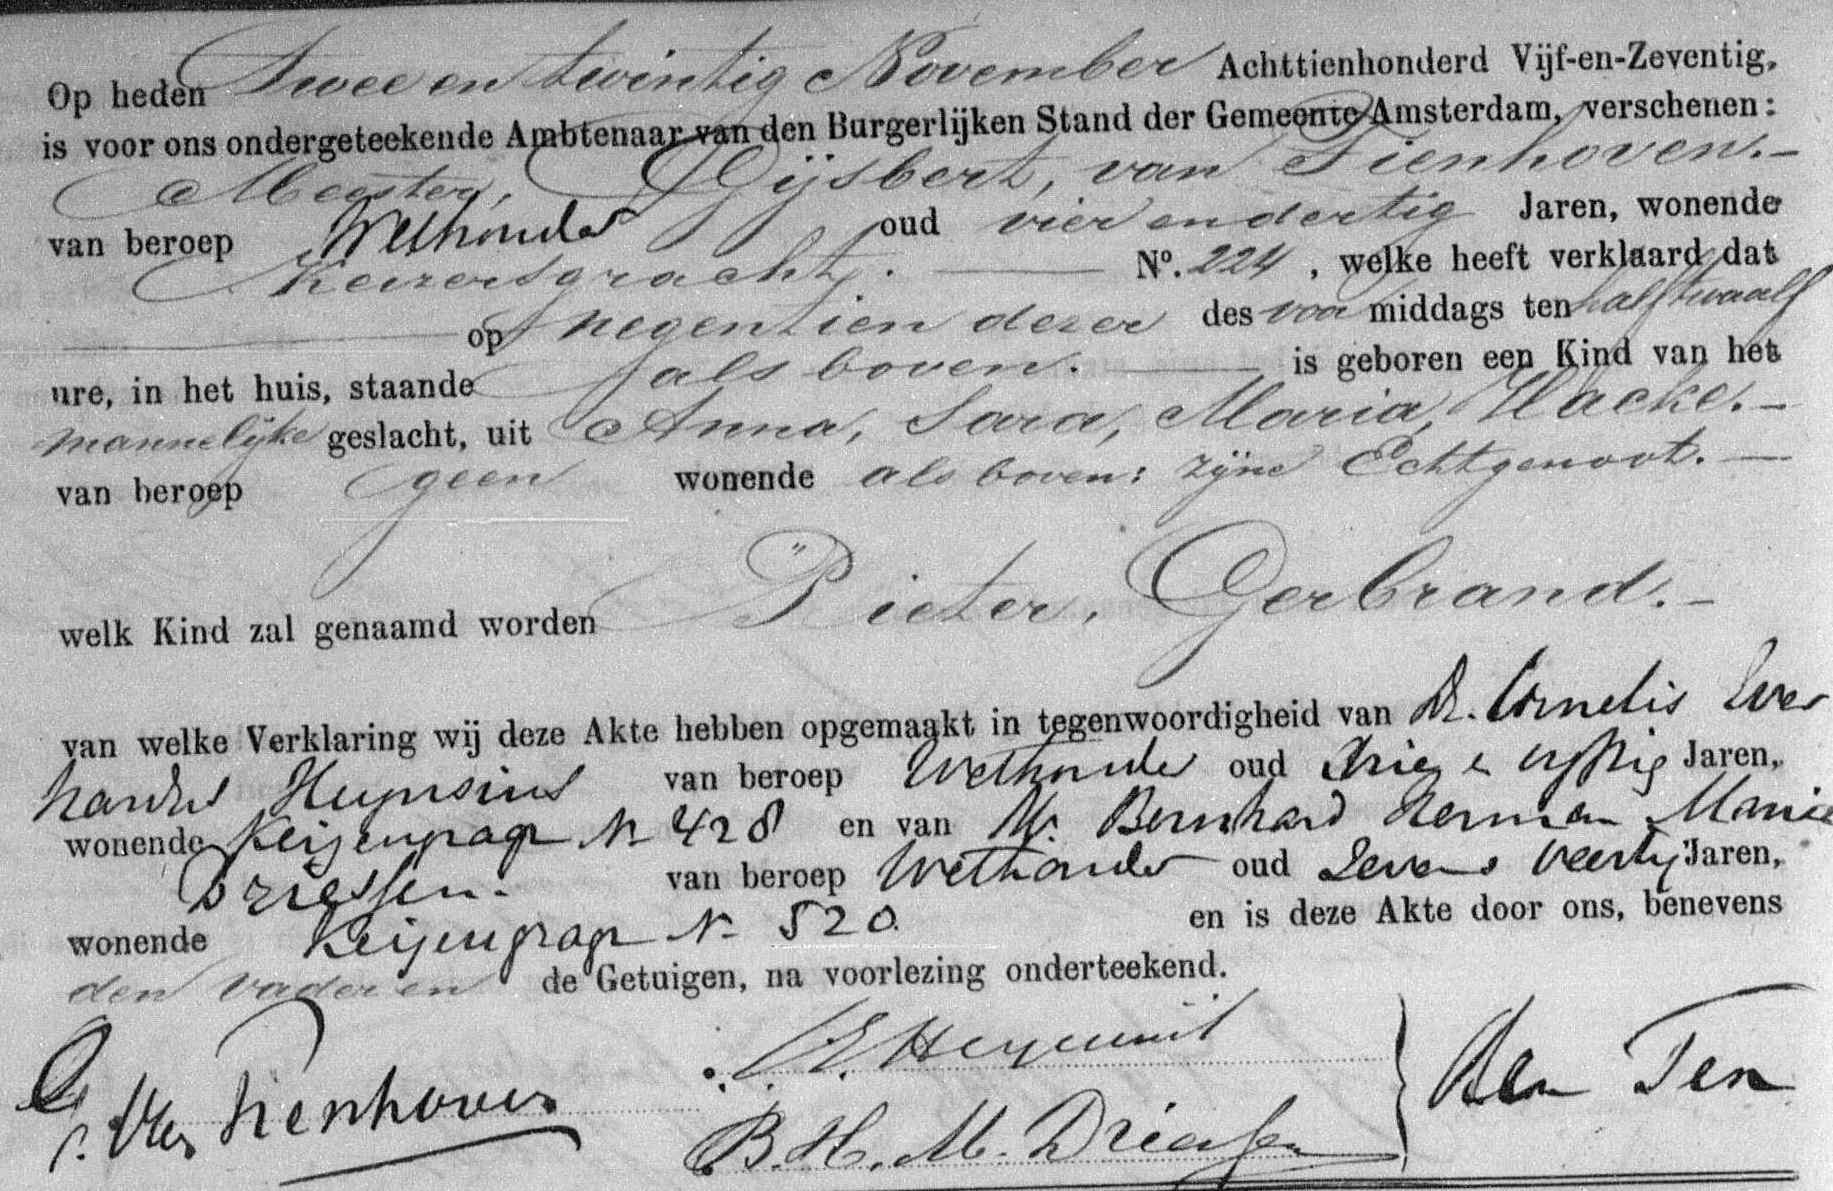 Op heden Twee en twintig November Achttienhonderd Vijf-en-Zeventig,
is voor ons ondergeteekende Ambtenaar van den Burgerlijken Stand der Gemeente Amsterdam, verschenen:
Meester, Gijsbert, van Tienhoven.-
van beroep Wethouder oud vier en dertig Jaren, wonende
Keizersgracht. No. 224, welke heeft verklaard dat
op negentien dezer des voor middags ten half twaalf
ure, in het huis, staande als boven. is geboren een Kind van het
mannelijke geslacht, uit Anna, Sara, Maria, Hacke.-
van beroep geen wonende als boven: zijne Echtgenoot.-
welk Kind zal genaamd worden Pieter, Gerbrand.-
van welke Verklaring wij deze Akte hebben opgemaakt in tegenwoordigheid van Dr. Cornelis Ever
hardus Heynsius van beroep Wethouder oud drie en vyftig Jaren,
wonende Keizersgracht No 428 en van Mr. Bernhard Herman Marie
Driessen. van beroep Wethouder oud zeven en veertig Jaren,
wonende Keizersgracht No 520. en is deze Akte door ons, benevens
den vader en de Getuigen, na voorlezing onderteekend.
G. van Tienhoven
C. E. Heynsius
B. H. M. Driessen
Ten